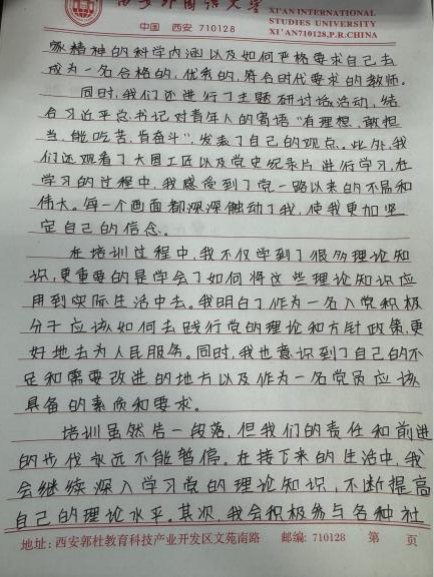 西安外国语大学 XI'AN INTERNATIONAL
中国 西安 710128 STUDIES UNIVERSITY
XI'AN710128,P.R.CHINA
家精神的科学内涵以及如何严格要求自己去
成为一名合格的,优秀的,符合时代要求的教师。
同时,我们还进行了主题研讨活动,结
合习近平总书记对青年人的寄语“有理想,敢担
当,能吃苦,肯奋斗”,发表了自己的观点。此外,我
们还观看了大国工匠以及党史纪录片进行学习,在
学习的过程中,我感受到了党一路以来的不易和
伟大。每一个画面都深深触动了我,使我更加坚
定自己的信念。
在培训过程中,我不仅学到了很多理论知
识,更重要的是学会了如何将这些理论知识应
用到实际生活中去。我明白了作为一名入党积极
分子应该如何去践行党的理论和方针政策,更
好地去为人民服务。同时,我也意识到了自己的不
足和需要改进的地方以及作为一名党员应该
具备的素质和要求。
培训虽然告一段落,但我们的责任和前进
的步伐永远不能暂停。在接下来的生活中,我
会继续深入学习党的理论知识,不断提高
自己的理论水平。其次,我会积极参与各种社
地址:西安郭杜教育科技产业开发区文苑南路 邮编:710128 第 页